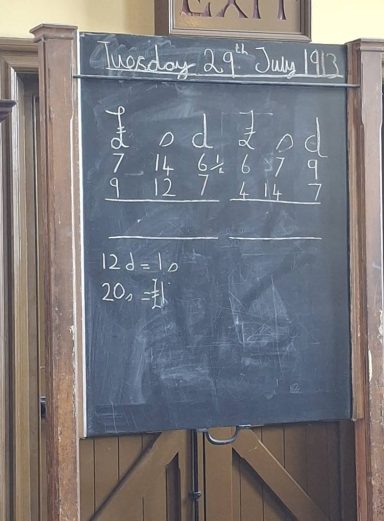 EXIT
Tuesday 29th July 1913
£ s d £ s d
7 14 6½ 6 7 9
9 12 7 4 14 7
12d = 1s
20s = £1